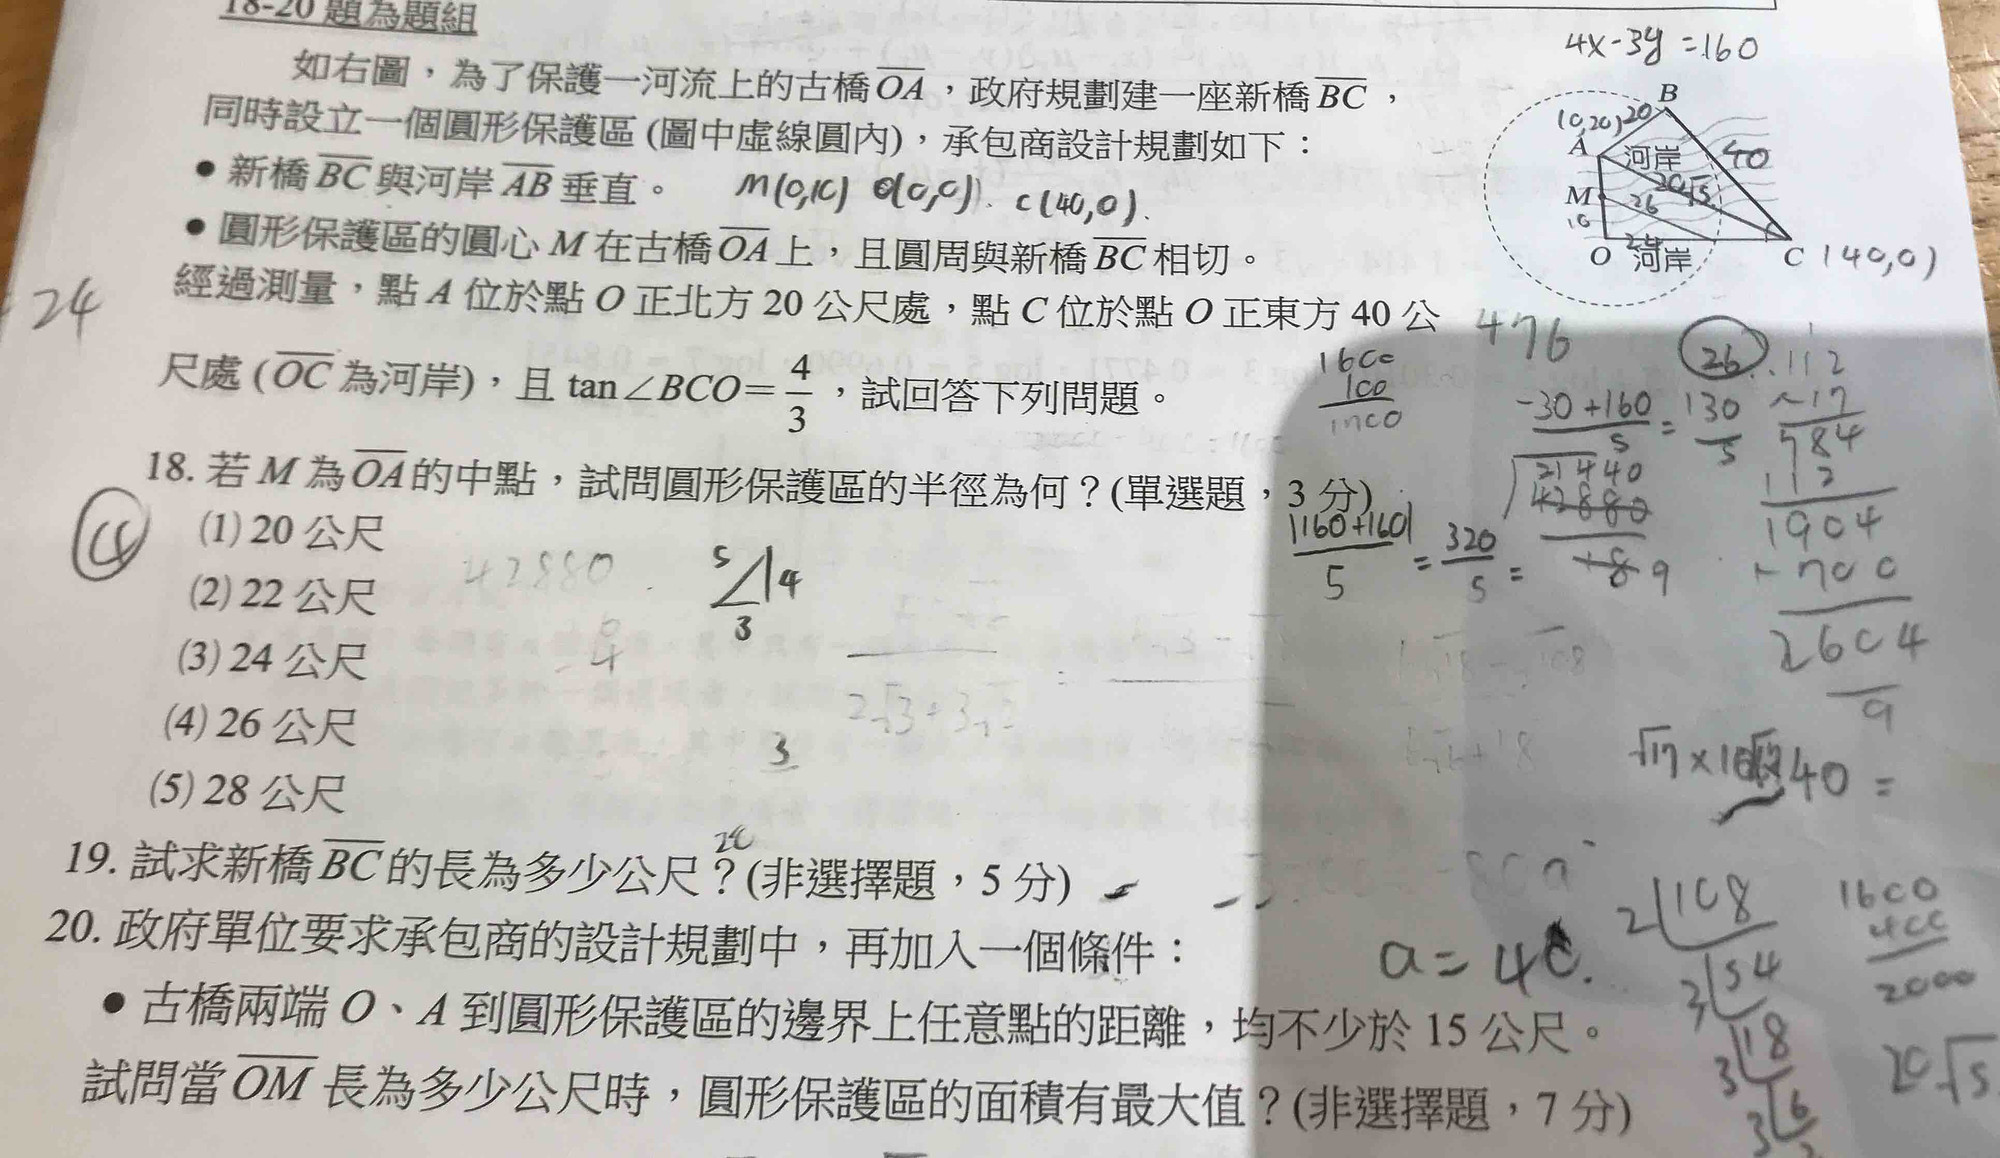 18-20 題為題組
如右圖，為了保護一河流上的古橋OA，政府規劃建一座新橋BC，
同時設立一個圓形保護區 (圖中虛線圓內)，承包商設計規劃如下：
• 新橋BC與河岸AB垂直。 M(0,10) O(0,0). C(40,0).
• 圓形保護區的圓心 M 在古橋OA上，且圓周與新橋BC相切。
經過測量，點 A 位於點 O 正北方 20 公尺處，點 C 位於點 O 正東方 40 公
尺處 (OC 為河岸)，且 tan∠BCO=4/3，試回答下列問題。
18. 若 M 為OA的中點，試問圓形保護區的半徑為何？(單選題，3 分)
(1) 20 公尺
(2) 22 公尺
(3) 24 公尺
(4) 26 公尺
(5) 28 公尺
19. 試求新橋BC的長為多少公尺？(非選擇題，5 分)
20. 政府單位要求承包商的設計規劃中，再加入一個條件：
• 古橋兩端 O、A 到圓形保護區的邊界上任意點的距離，均不少於 15 公尺。
試問當OM 長為多少公尺時，圓形保護區的面積有最大值？(非選擇題，7 分)
4x-3y=160
B
(0,20) 20
A 河岸 40
20√5
M 26
10
24
O 河岸 C (40,0)
24
476
26
112
1600
100
1700
-30+160/5 = 130/5
17
784
112
1904
700
2604
21440
42880
|160+160|/5 = 320/5 =
42880
5 4
3
2√3+3√2
3
a=40.
2 108
3 54
3 18
3 6
1600
400
2000
20√5